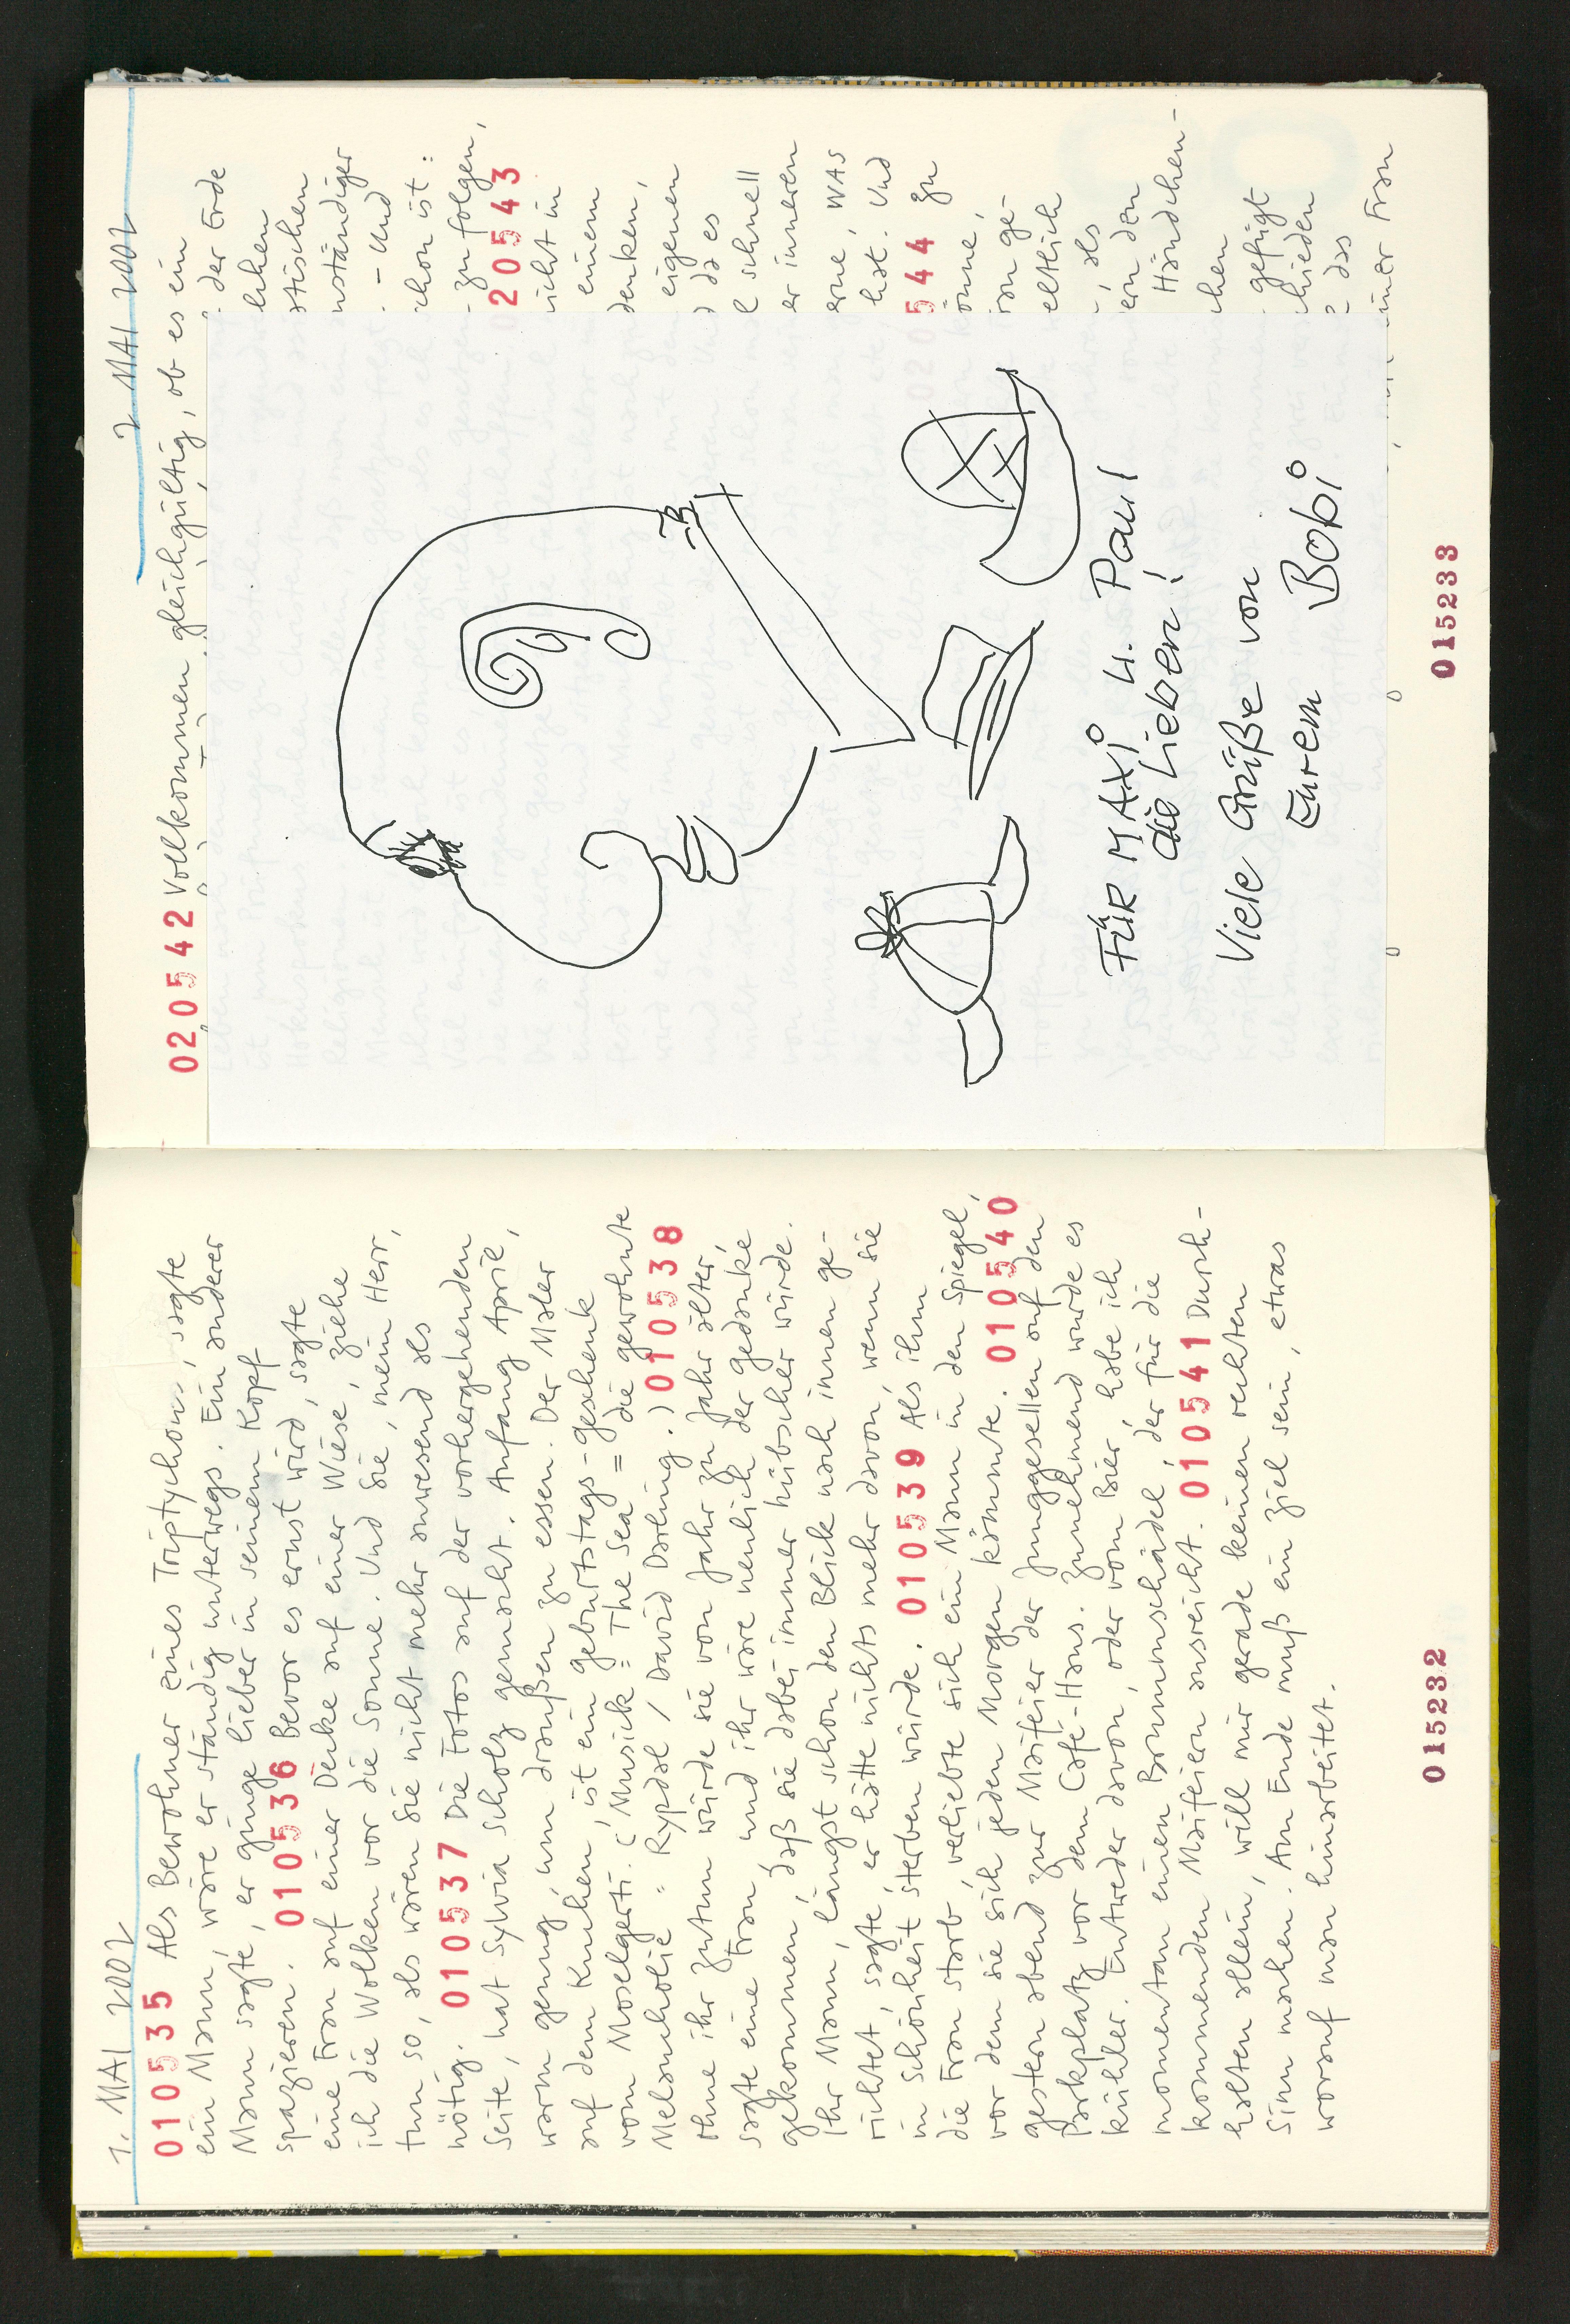 1. MAI 2002
010535 Als Bewohner eines Triptychons, sagte
ein Mann, wäre er ständig unterwegs. Ein anderer
Mann sagte, er ginge lieber in seinem Kopf
spazieren. 010536 Bevor es ernst wird, sagte
eine Frau auf einer Decke auf einer Wiese, ziehe
ich die Wolken vor die Sonne. Und Sie, mein Herr,
tun so, als wären Sie nicht mehr anwesend als
nötig. 010537 Die Fotos auf der vorhergehenden
Seite, hat Sylvia Scholz gemacht. Anfang April,
warm genug, um draußen zu essen. Der Maler
auf dem Kuchen, ist ein Geburtstags-Geschenk
vom Moselgerti. (Musick: The Sea = die gewohnte
Melancholie. Rypdal / David Darling.) 010538
Ohne ihr Zutun würde sie von Jahr zu Jahr älter,
sagte eine Frau, und ihr wäre neulich der Gedanke
gekommen, daß sie dabei immer hübscher würde.
Ihr Mann, längst schon den Blick nach innen ge-
richtet, sagte, er hätte nichts mehr davon, wenn sie
in Schönheit sterben würde. 010539 Als ihm
die Frau starb, verliebte sich ein Mann in den Spiegel,
vor dem sie sich jeden Morgen kämmte. 010540
gestern abend zur Maifeier der Junggesellen auf den
Parkplatz vor dem Café-Hans. Zunehmend wurde es
kühler. Entweder davon, oder vom Bier, habe ich
momentan einen Brummschädel, der für die
kommenden Maifeiern ausreicht. 010541 Durch-
halten allein, will mir gerade keinen rechten
Sinn machen. Am Ende muß ein Ziel sein, etwas
worauf man hinarbeitet.
015232
2. MAI 2002
020542 Vollkommen gleichgültig, ob es ein
der Erde
nständiger
- Und
chon ist:
zu folgen,
20543
icht in
einem
denken,
eigenen
da es
schnell
er inneren
erne, WAS
hat. Und
544 zu
önne,
ge-
eltlich
, als
ern den
Händchen-
chen
gefügt
chieden
das
iner Frau
FÜR MAXI u. Paul
die Lieben!
Viele Grüße von
Eurem Bobi
015233